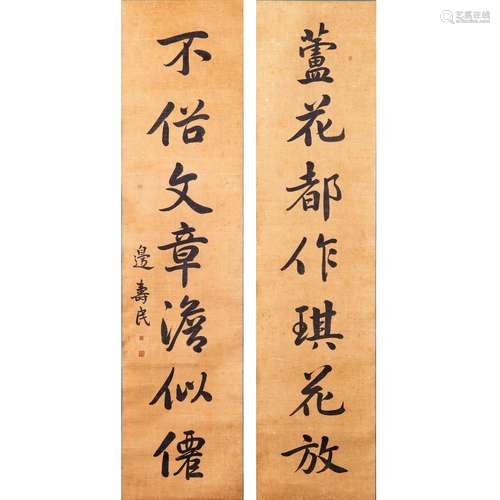 蘆花都作琪花放
不俗文章澹似僊
邊壽民
艺典在线